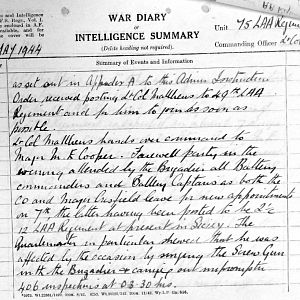 WAR DIARY
or
INTELLIGENCE SUMMARY
(Delete heading not required).
and Intelligence
F.S. Regs., Vol. I.
Unit 75 LAA Regim
Commanding Officer
MAY 1944
Summary of Events and Information
as set out in Appendix A to this Admin Instruction
Order received posting Lt Col Matthews to 49th LAA
Regiment and for him to join as soon as
possible
Lt Col Matthews hands over command to
Major M.K Cooper. Farewell party in the
evening attended by the Brigadier all Battery
commanders and Battery Captains as both the
CO and Major leave for new appointments
on 7th, the latter having been posted to the 2i/c
12 LAA Regiment at present in . The
Quartermaster in particular shewed that he was
affected by the occasion by singing the Screw Gun
with the Brigadier & carrying out impromptu
406 inspections at 03.30 hrs.